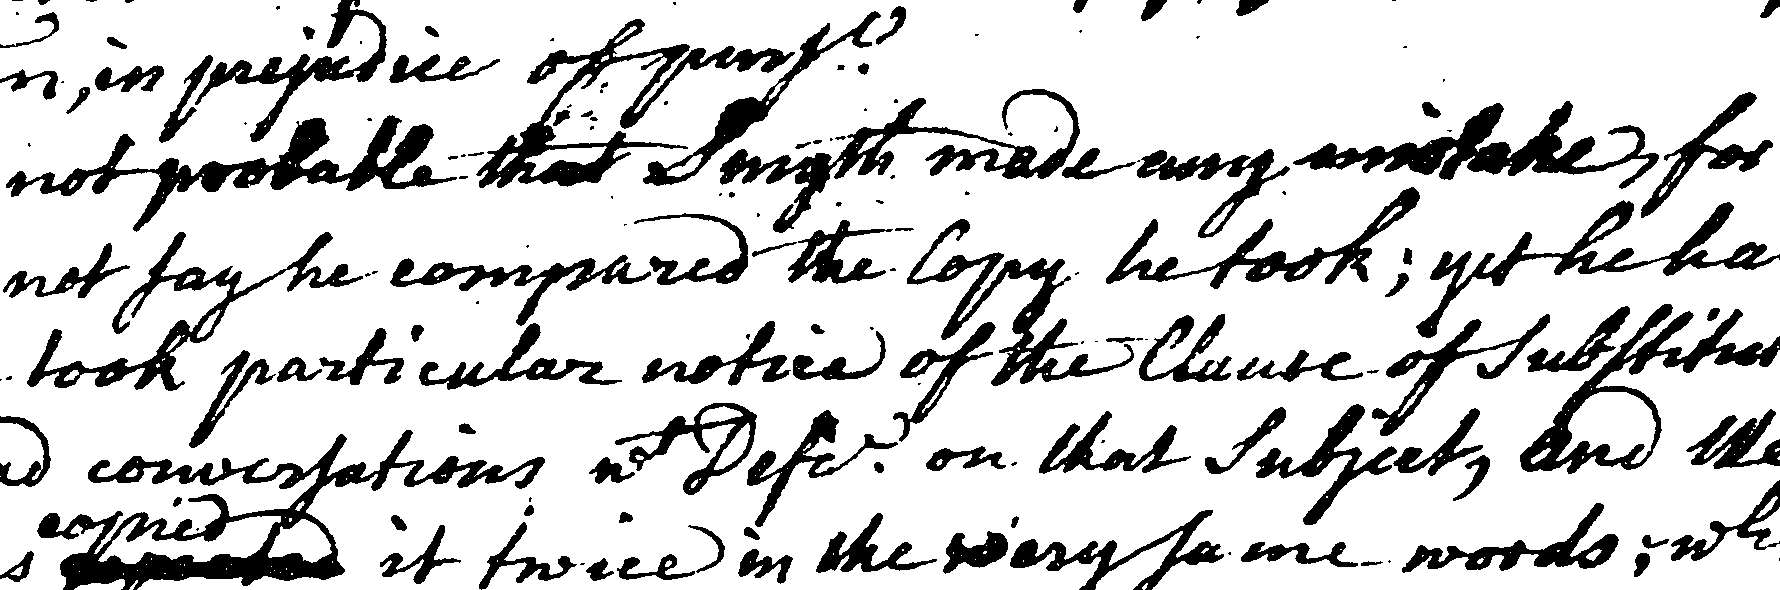 n, in prejudice of purs<sup>r</sup>.
not probable that Smyth made any mistake, for
not say he compared the Copy he took; yet he ha
took particular notice of the Clause of Substitu
ad conversations w<sup>t</sup> Def<sup>dr</sup>. on that Subject, and the
copied
s it twice in the very same words; wh